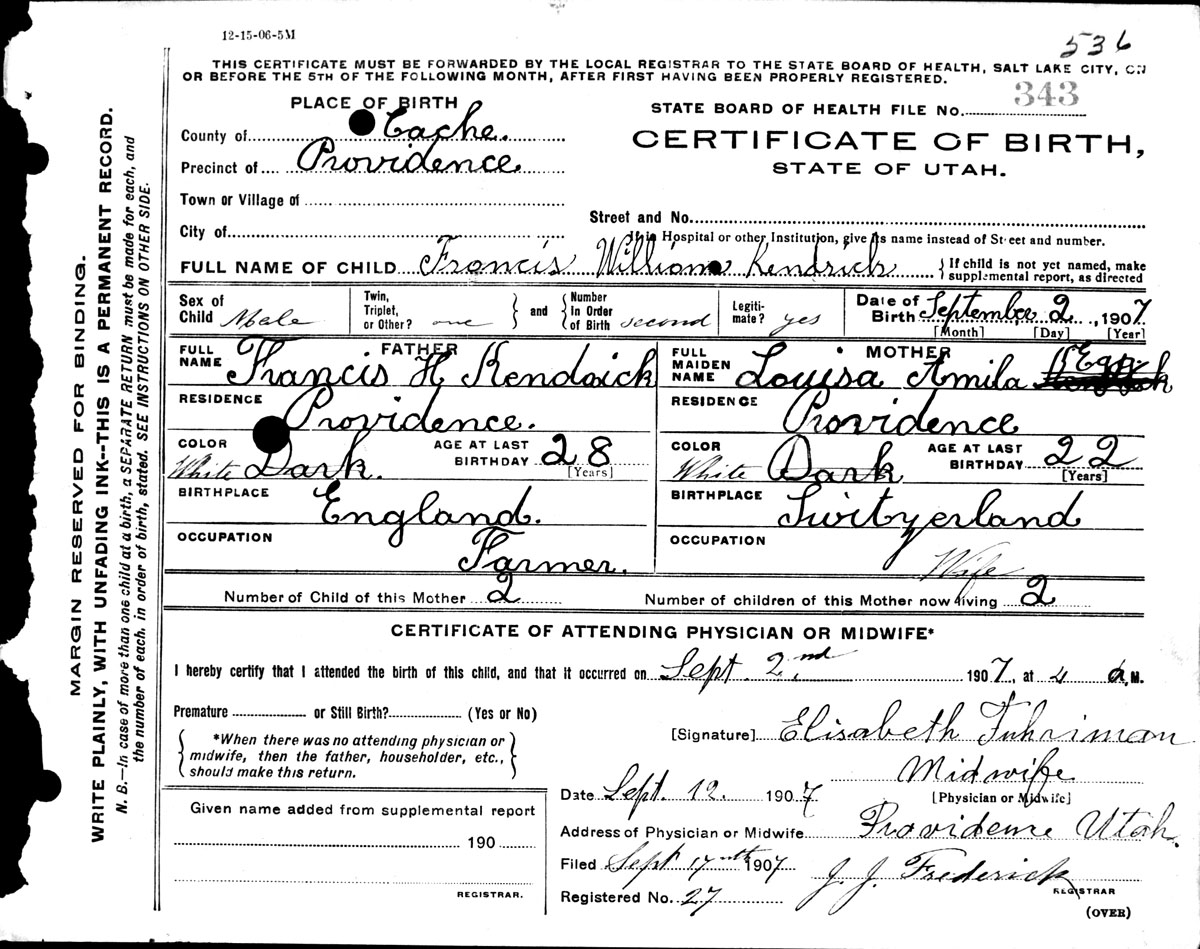 12-15-06-5M
536
THIS CERTIFICATE MUST BE FORWARDED BY THE LOCAL REGISTRAR TO THE STATE BOARD OF HEALTH, SALT LAKE CITY, ON
OR BEFORE THE 5TH OF THE FOLLOWING MONTH, AFTER FIRST HAVING BEEN PROPERLY REGISTERED.
PLACE OF BIRTH
STATE BOARD OF HEALTH FILE No. 343
County of Cache.
CERTIFICATE OF BIRTH,
Precinct of Providence
STATE OF UTAH.
Town or Village of
Street and No.
City of
If in Hospital or other Institution, give its name instead of Street and number.
FULL NAME OF CHILD Francis William Kendrick
{If child is not yet named, make
supplemental report, as directed
Sex of Child Male
Twin, Triplet, or Other? one } and { Number In Order of Birth second
Legiti-mate? yes
Date of Birth September 2, 1907
[Month] [Day] [Year]
FATHER
FULL NAME Francis H Kendrick
MOTHER
FULL MAIDEN NAME Louisa Amila Egg
RESIDENCE Providence.
RESIDENCE Providence
COLOR White Dark. AGE AT LAST BIRTHDAY 28 [Years]
COLOR White Dark AGE AT LAST BIRTHDAY 22 [Years]
BIRTHPLACE England.
BIRTHPLACE Switzerland
OCCUPATION Farmer.
OCCUPATION Wife
Number of Child of this Mother 2
Number of children of this Mother now living 2
CERTIFICATE OF ATTENDING PHYSICIAN OR MIDWIFE*
I hereby certify that I attended the birth of this child, and that it occurred on Sept 2nd, 1907, at 4 a.M.
Premature or Still Birth? (Yes or No)
[Signature] Elisabeth Fuhriman
{ *When there was no attending physician or
midwife, then the father, householder, etc.,
should make this return. }
Midwife
[Physician or Midwife]
Date Sept. 12. 1907
Given name added from supplemental report
190
REGISTRAR.
Address of Physician or Midwife Providence Utah.
Filed Sept 17nth 1907
J. J. Frederick
REGISTRAR
Registered No. 27
(OVER)
MARGIN RESERVED FOR BINDING.
WRITE PLAINLY, WITH UNFADING INK--THIS IS A PERMANENT RECORD.
N. B.--In case of more than one child at a birth, a SEPARATE RETURN must be made for each, and
the number of each, in order of birth, stated. SEE INSTRUCTIONS ON OTHER SIDE.